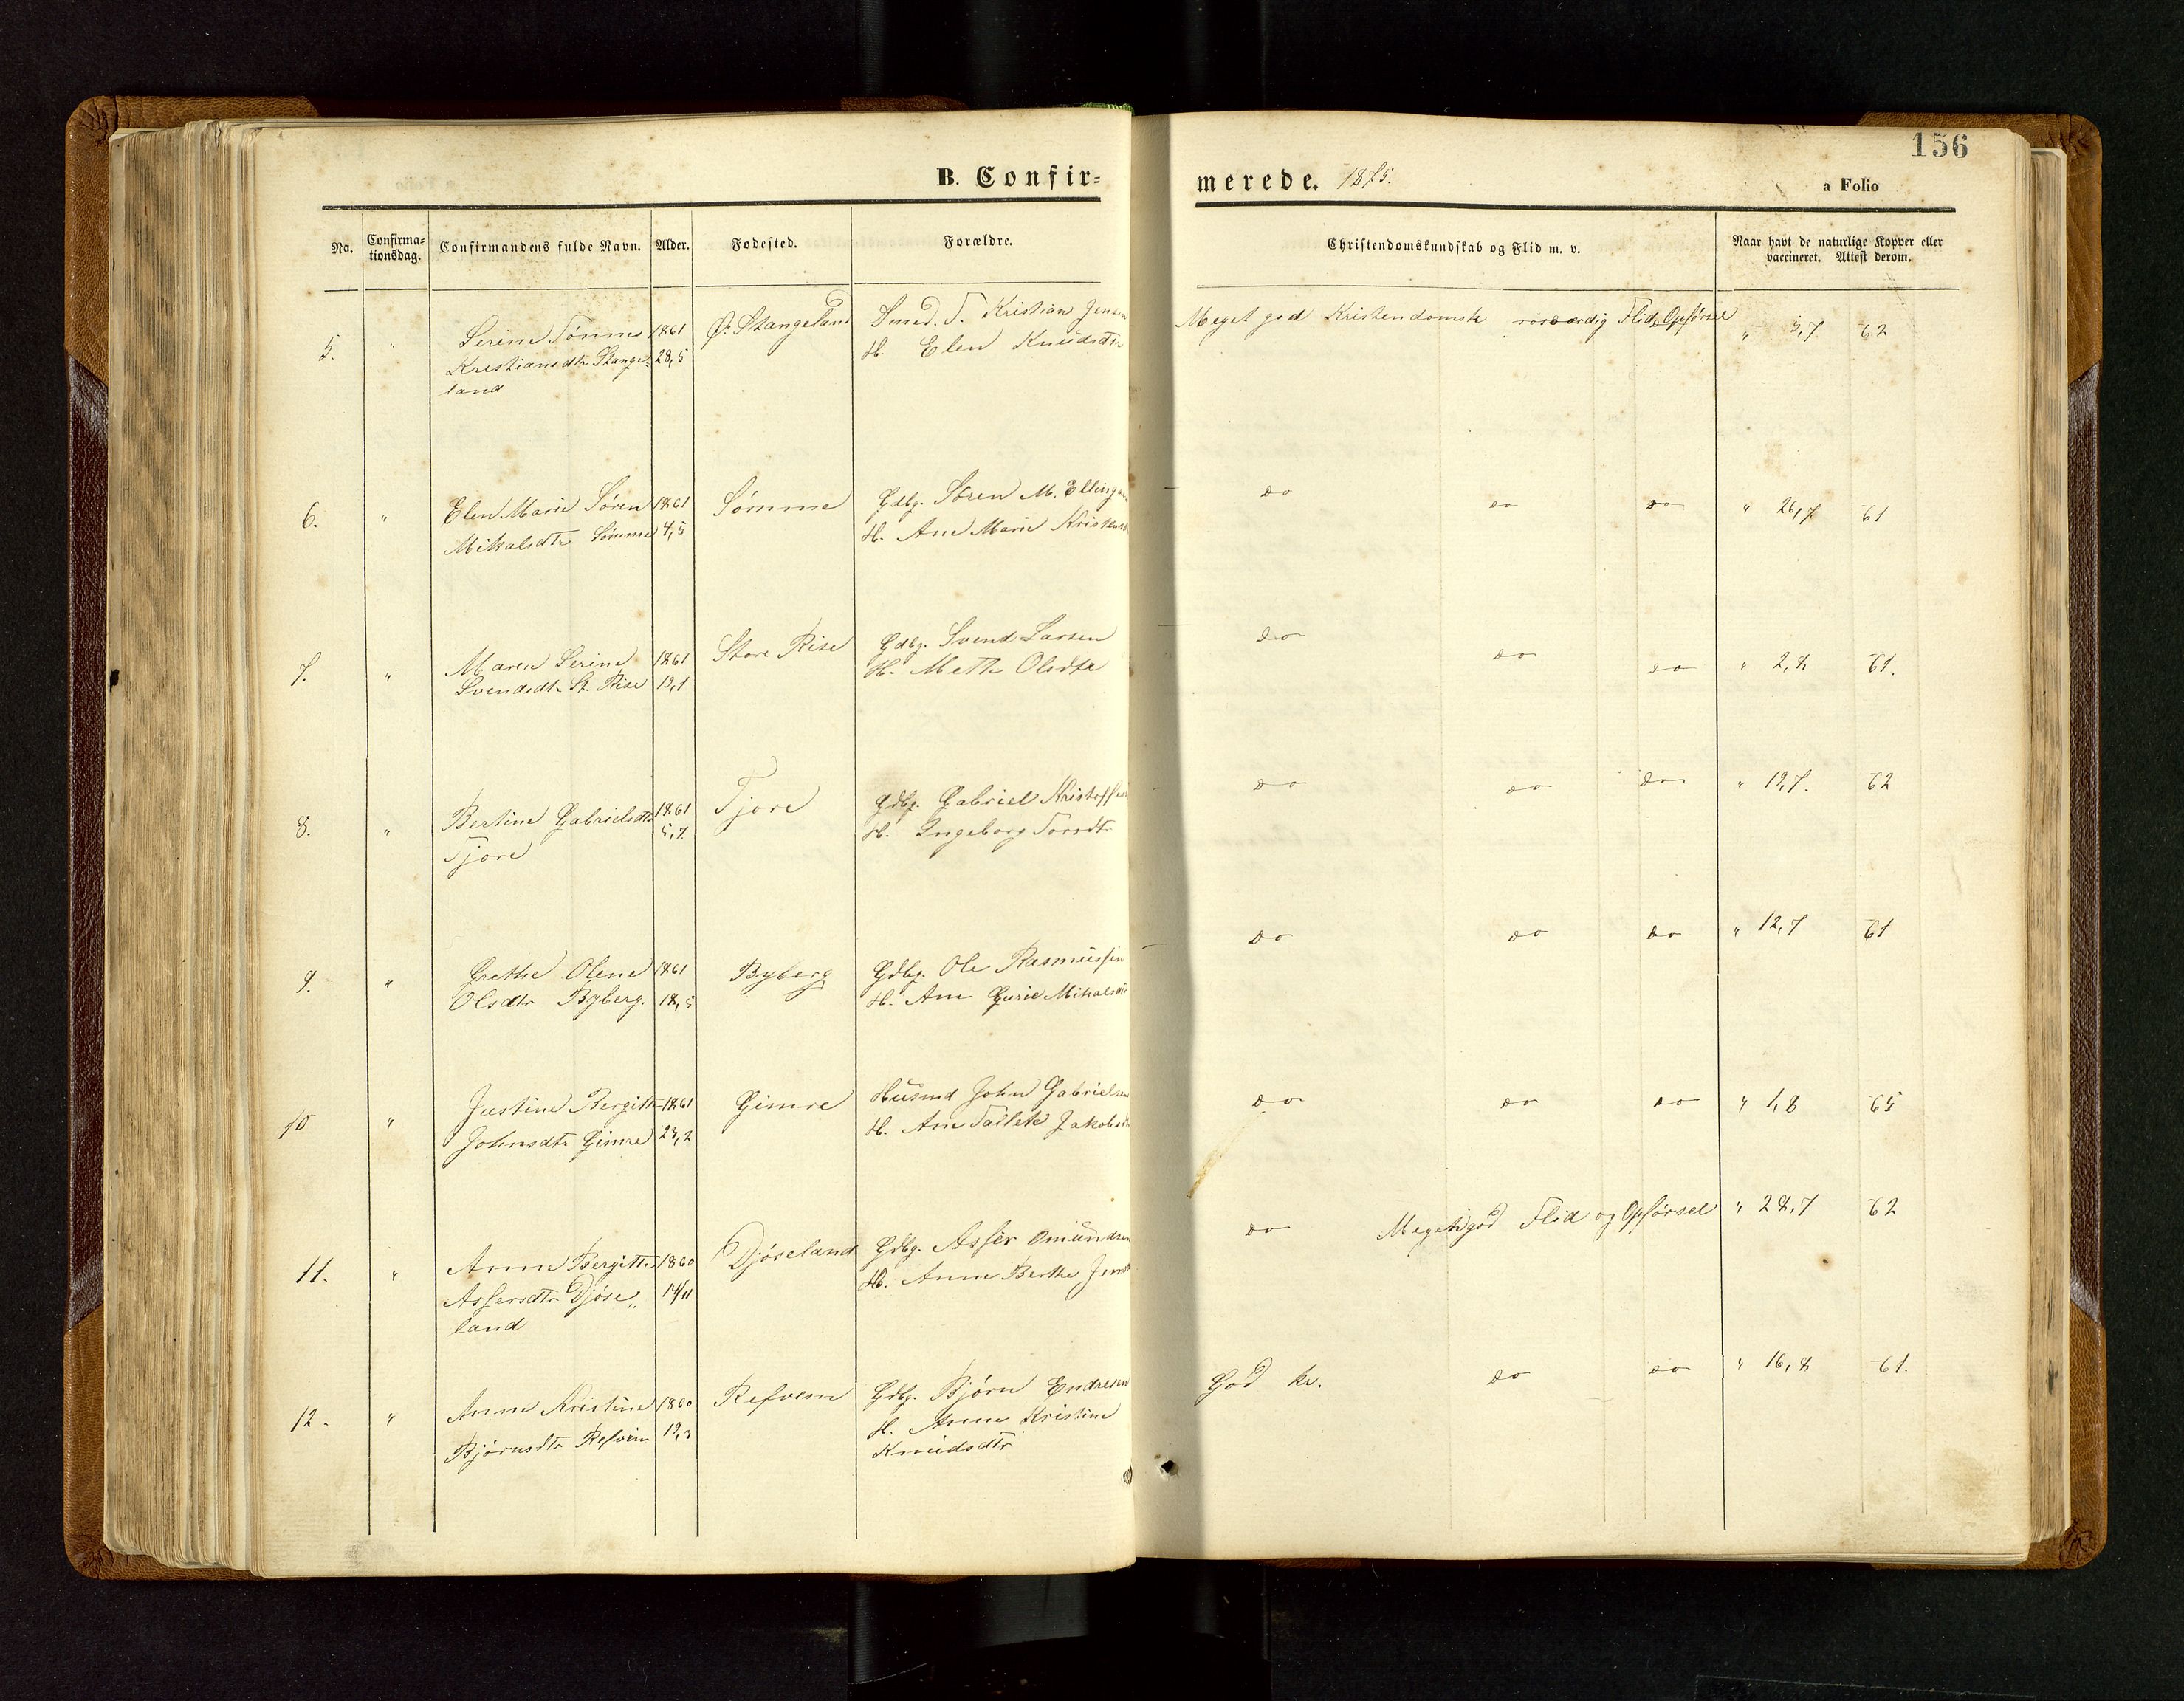 156
B. Confir=
merede. 1875.
a Folio
No.
Confirma=
tionsdag.
Confirmandens fulde Navn.
Alder.
Fødested.
Forældre.
Christendomskundskab og Flid m. v.
Naar havt de naturlige Kopper eller
vaccineret. Attest derom.
5. " Serine Tønnes 1861 Ø. Stangeland Smed. T. Kristian Jensen Meget god Kristendomsk rosværdig Flid, Opførsel " 3,7 62
Kristiansdtr Stange= 28,5 H. Elen Knudsdtr
land
6. " Elen Marie Søren 1861 Sømme Gdbg. Sören M. Ellings do do do " 26,7 61
Mikalsdtr Sømme 4,5 H. Ane Marie Kristens
7. " Maren Serine 1861 Store Rise Gdbg. Svend Larsen do do do " 2,8 61.
Svendsdtr St. Rise 13,1 H. Mette Olsdtr
8. " Bertine Gabrielsdtr 1861 Tjore Gdbg. Gabriel Kristoffers do do do " 19,7. 62
Tjore 5,7. H. Ingeborg Torsdtr
9. " Grethe Olene 1861 Byberg Gdbg. Ole Rasmussen do do do " 12,7 61
Olsdtr Byberg. 18,5 H. Ane Gurie Mikalsdtr
10 " Justine Bergitte 1861 Gimre Husmd John Gabrielsen do do do " 1,8 65
Johnsdtr Gimre 24,2 H. Ane Jakobsd
11. " Anne Bergitte 1860 Djøseland Gdbg. Asser Omundsen do Meget god Flid og Opførsel " 28,7 62
Assersdtr Djøse„ 14/11 H. Anne Berthe Jensd
land
12. " Anne Kristine 1860 Refvem Gdbg. Bjørn Endresen God kr. do do " 16,8 61.
Bjørnsdtr Refvem 19,3 H. Anne Kristine
Knudsdtr